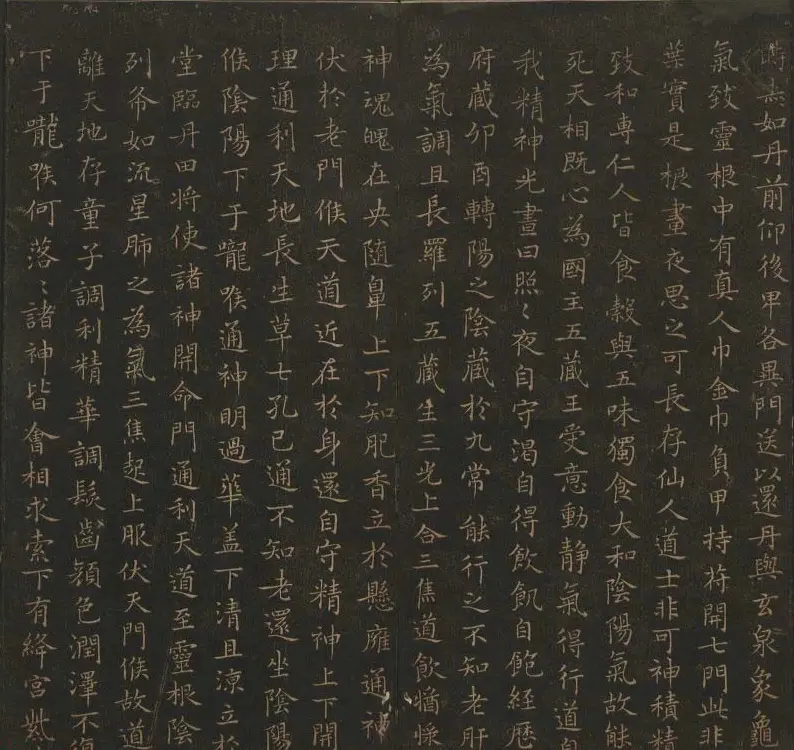 赤如丹前仰後卑各異門送以還丹與玄泉象龜
氣致靈根中有真人巾金巾負甲持符開七門此非
葉實是根晝夜思之可長存仙人道士非可神積精
致和專仁人皆食穀與五味獨食大和陰陽氣故能
死天相既心為國主五藏王受意動靜氣得行道
我精神光晝日照〻夜自守渴自得飲飢自飽經歷
府藏卯酉轉陽之陰藏於九常能行之不知老肝
為氣調且長羅列五藏生三光上合三焦道飲醬漿
神魂魄在央随鼻上下知肥香立於懸膺通神
伏於老門候天道近在於身還自守精神上下開
理通利天地長生草七孔已通不知老還坐陰陽
候陰陽下于嚨喉通神明過華盖下清且涼立於
堂臨丹田將使諸神開命門通利天道至靈根陰
列布如流星肺之為氣三焦起上服伏天門候故道
離天地存童子調利精華調髮齒顏色潤澤不復
下于嚨喉何落〻諸神皆會相求索下有絳宮紫